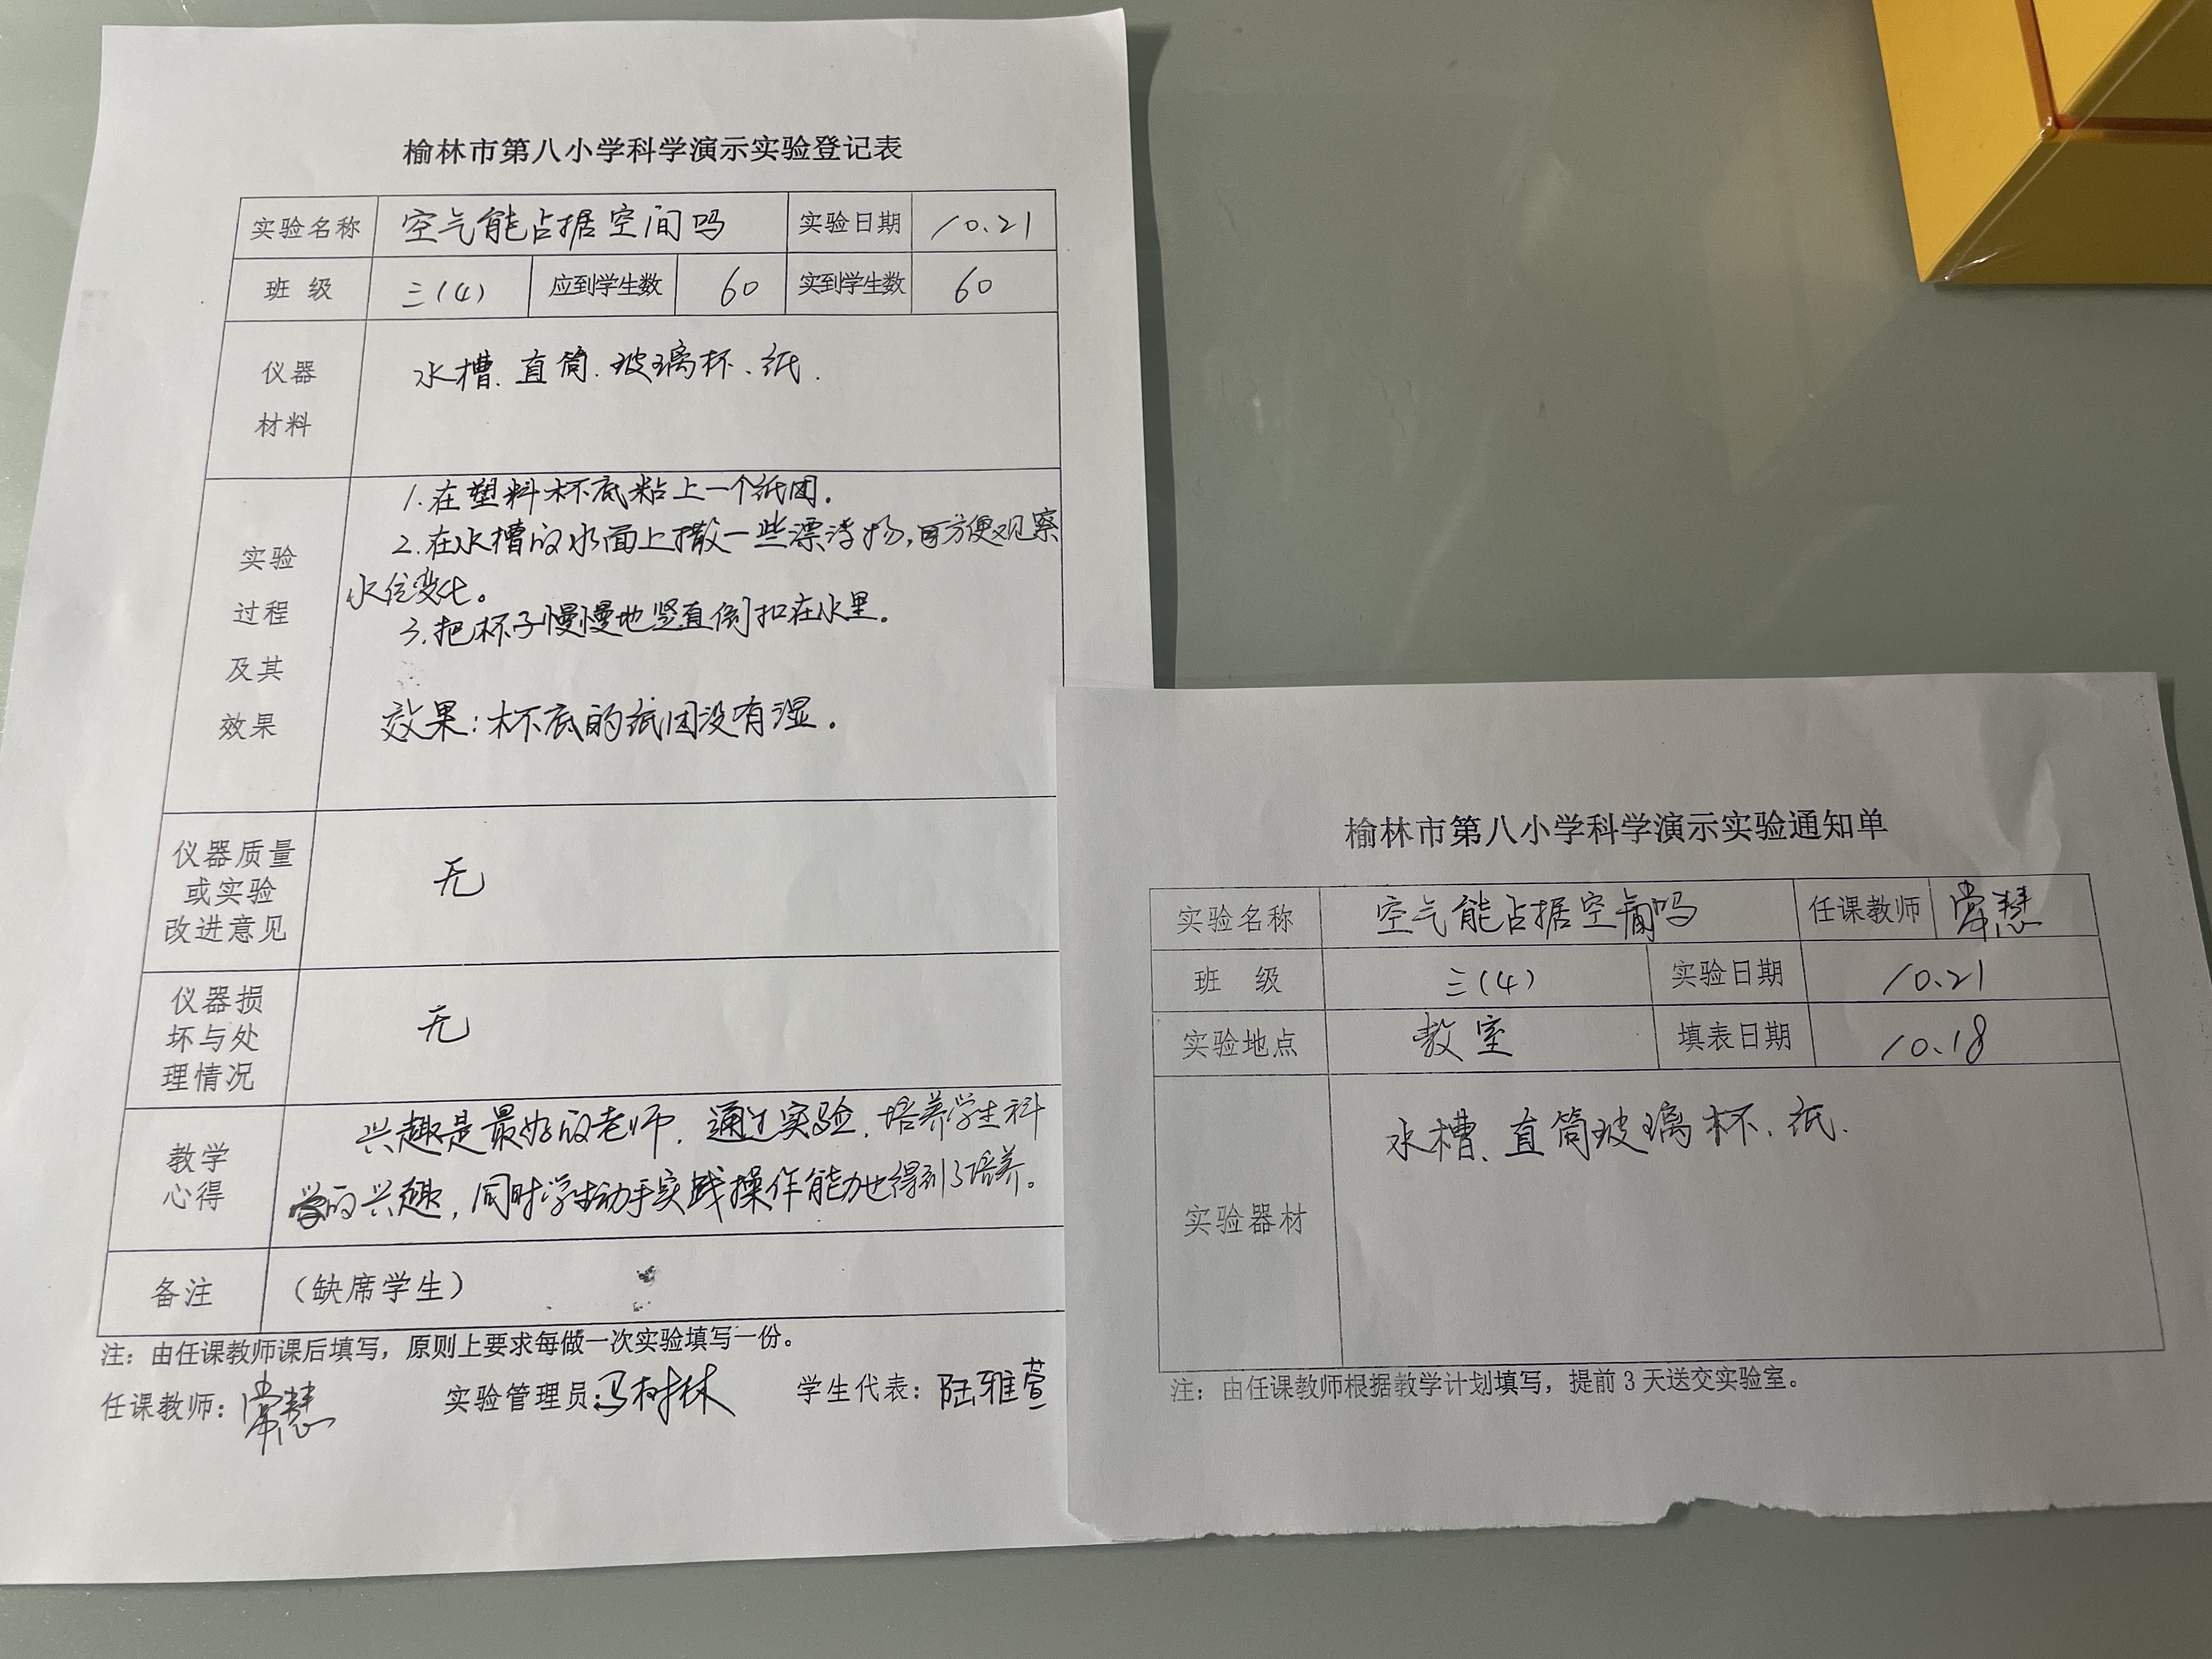 榆林市第八小学科学演示实验登记表
实验名称 空气能占据空间吗 实验日期 10.21
班 级 三(4) 应到学生数 60 实到学生数 60
仪器
材料
水槽、直筒、玻璃杯、纸.
实验
过程
及其
效果
1.在塑料杯底粘上一个纸团.
2.在水槽的水面上撒一些漂浮物,方便观察
水位变化。
3.把杯子慢慢地竖直倒扣在水里.
效果:杯底的纸团没有湿.
仪器质量
或实验
改进意见
无
仪器损
坏与处
理情况
无
教学
心得
兴趣是最好的老师,通过实验,培养学生科
学的兴趣,同时学生动手实践操作能力也得到了培养。
备注 (缺席学生)
注:由任课教师课后填写,原则上要求每做一次实验填写一份。
任课教师:常慧 实验管理员:马树林 学生代表:陆雅萱
榆林市第八小学科学演示实验通知单
实验名称 空气能占据空间吗 任课教师 常慧
班 级 三(4) 实验日期 10.21
实验地点 教室 填表日期 10.18
实验器材 水槽、直筒玻璃杯、纸.
注:由任课教师根据教学计划填写,提前3天送交实验室。